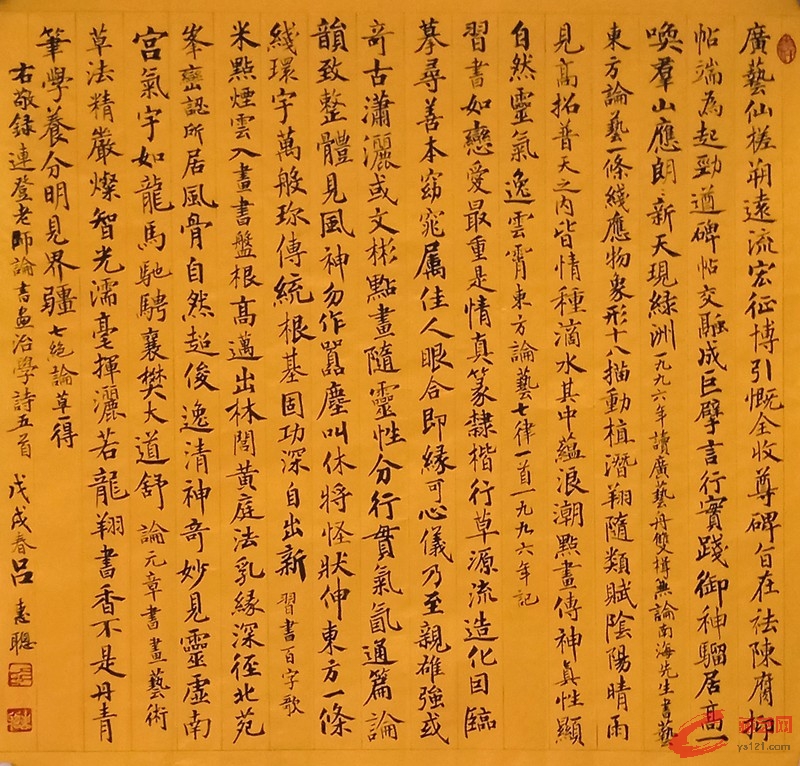 廣藝仙槎朔遠流宏征博引慨全收尊碑旨在袪陳腐抑
帖端為起勁遒碑帖交融成巨擘言行實踐御神騮居高一
喚羣山應朗朗新天現綠洲一九九六年讀廣藝舟雙楫無論南海先生書藝
東方論藝一條綫應物象形十八描動植潛翔隨類賦陰陽晴雨
見高拓普天之内皆情種滴水其中蘊浪潮點畫傳神真性顯
自然靈氣逸雲霄東方論藝七律一首一九九六年記
習書如戀愛最重是情真篆隸楷行草源流造化因臨
摹尋善本窈窕属佳人眼合即緣可心儀乃至親雄強或
奇古瀟灑或文彬點畫隨靈性分行貫氣氤通篇論
韻致整體見風神勿作囂塵叫休將怪狀伸東方一條
綫環宇萬般珎傳統根基固功深自出新習書百字歌
米點煙雲入畫書盤根高邁出林閭黃庭法乳緣深徑北苑
峯巒認所居風骨自然超俊逸清神奇妙見靈虛南
宮氣宇如龍馬馳騁襄樊大道舒論元章書畫藝術
草法精嚴燦智光濡毫揮灑若龍翔書香不是丹青
筆學養分明見界疆七絕論草一得
右敬録連登老師論書畫治學詩五首戊戌春吕惠聰
ys121.com